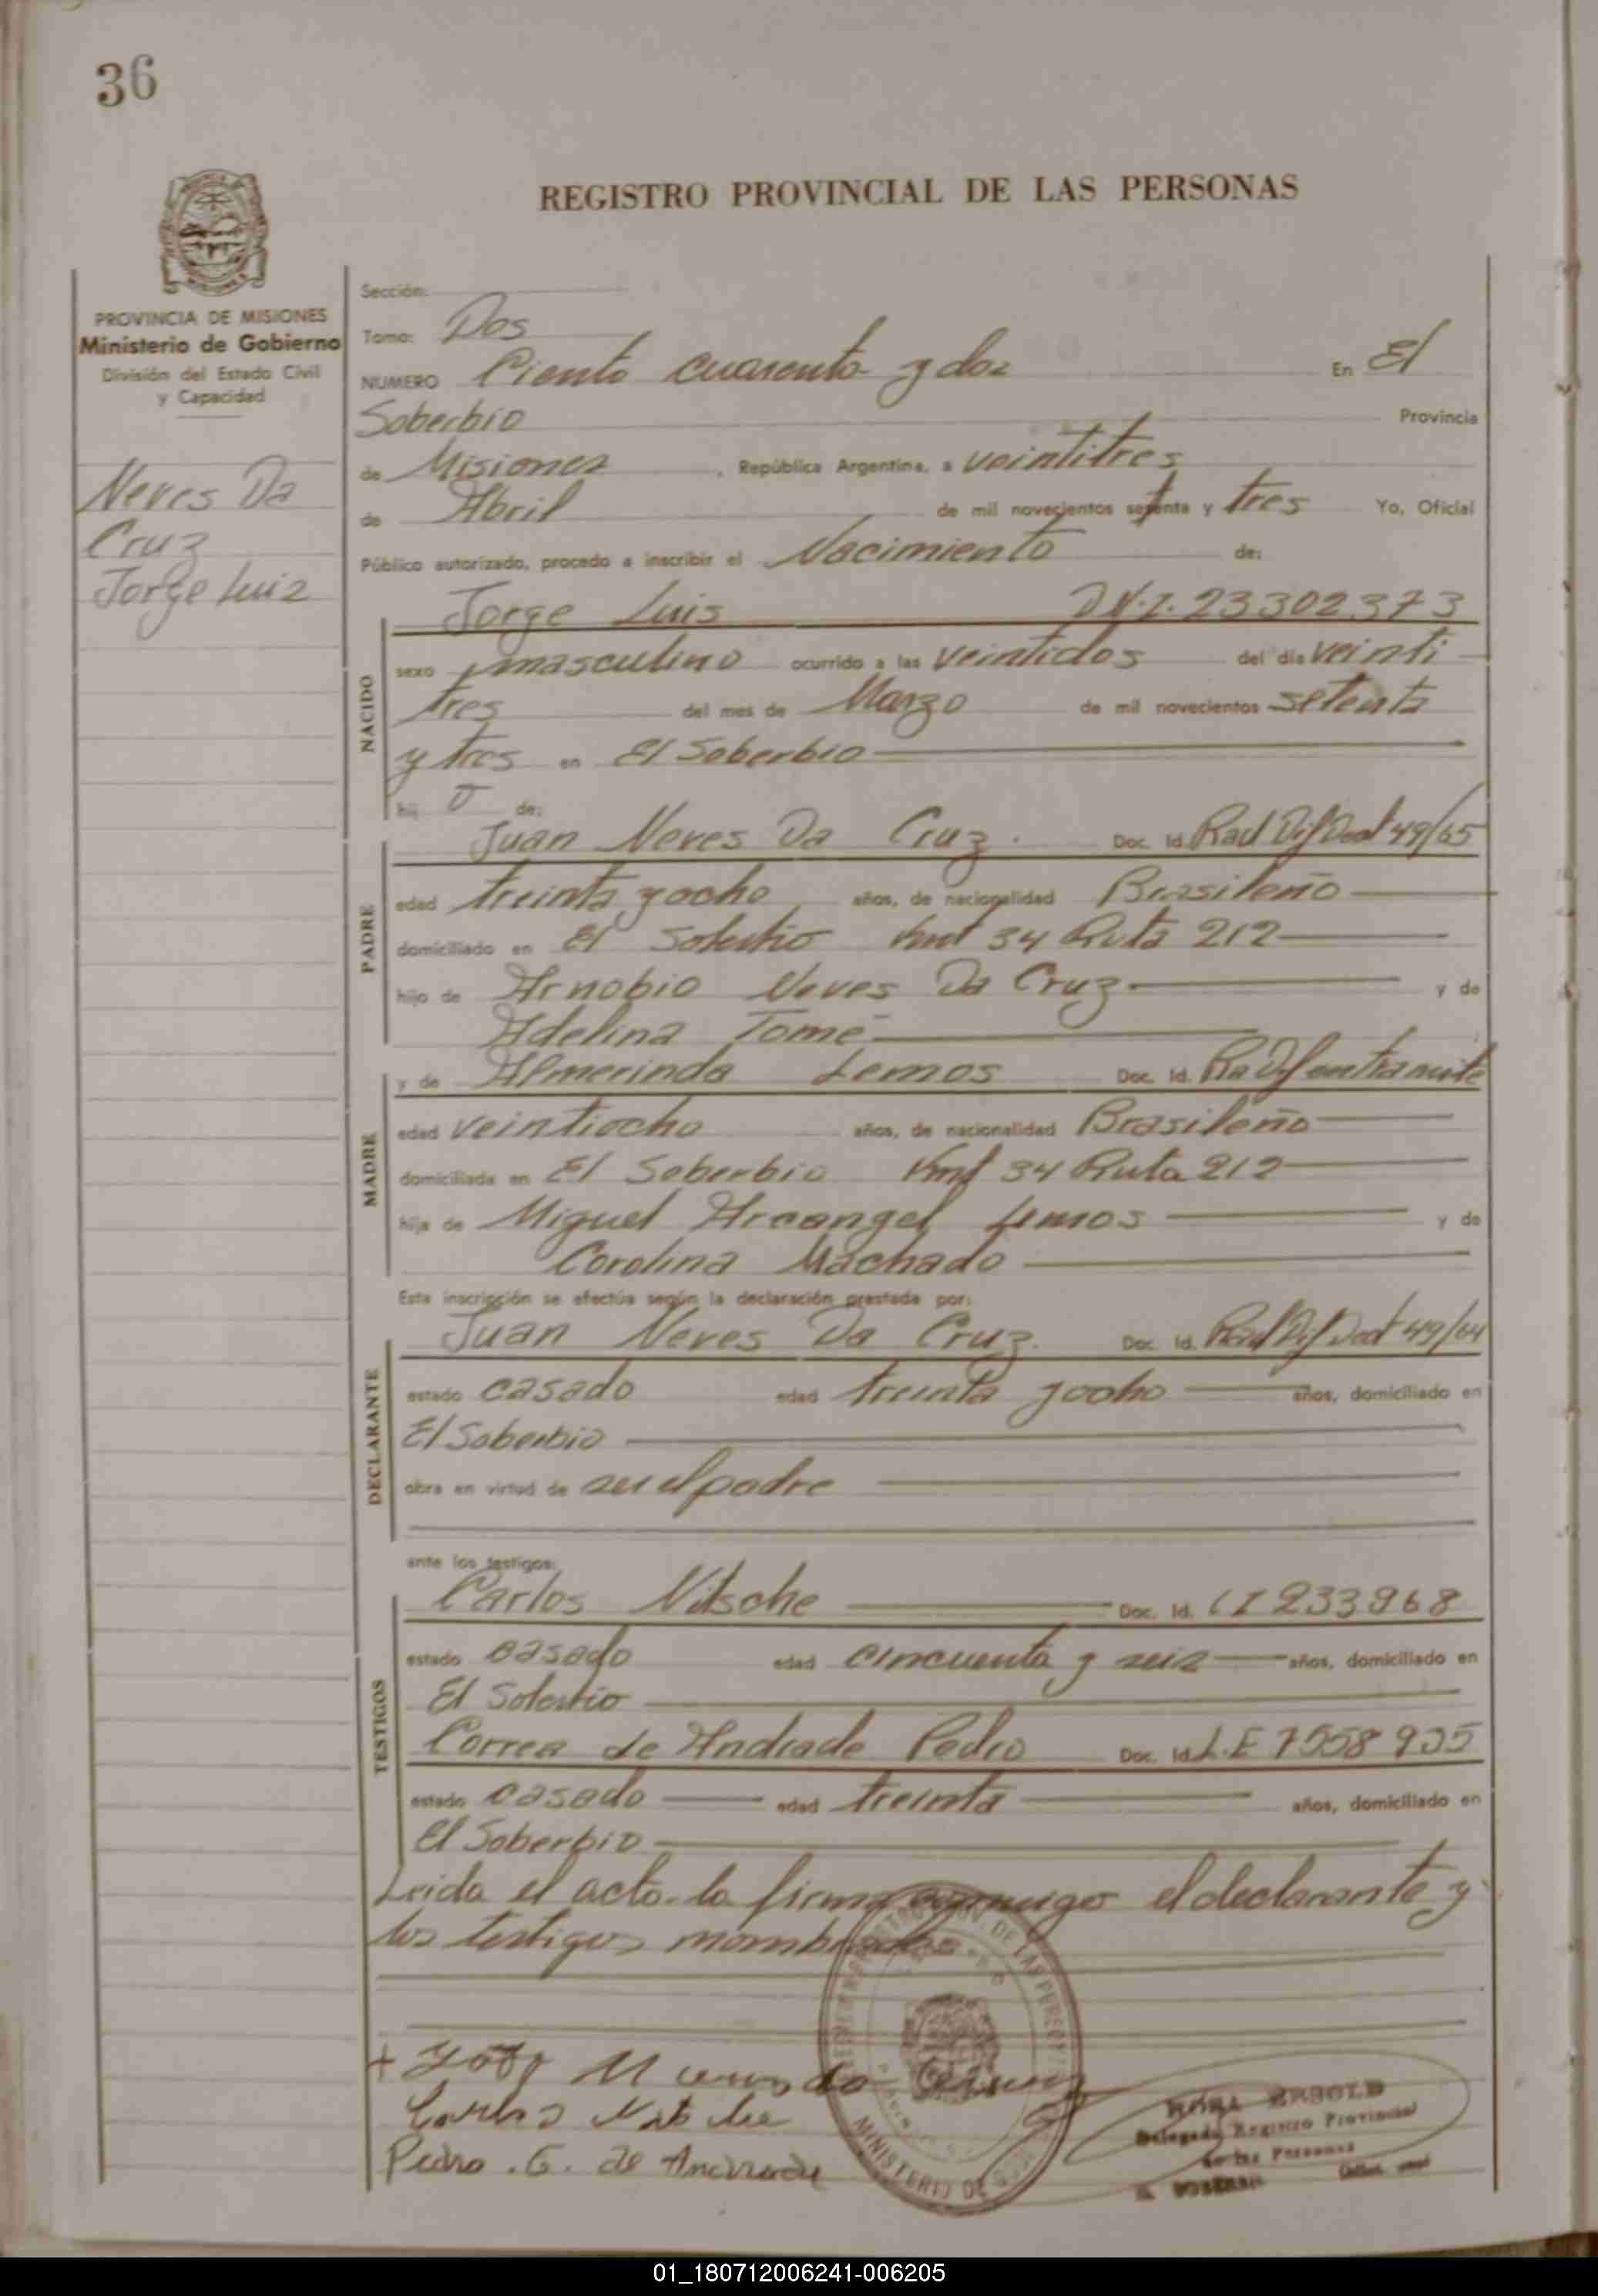 36
REGISTRO PROVINCIAL DE LAS PERSONAS
PROVINCIA DE MISIONES
Ministerio de Gobierno
División del Estado Civil
y Capacidad
Neves Da
Cruz
Jorge Luiz
Sección:
Tomo: Dos
NUMERO Ciento cuarenta y dos En El
Soberbio Provincia
de Misiones, República Argentina, a veintitres
de Abril de mil novecientos setenta y tres Yo, Oficial
Público autorizado, procedo a inscribir el Nacimiento de:
NACIDO
Jorge Luis D.N.I. 23302373
sexo masculino ocurrido a las veintidos del día veinti
tres del mes de Marzo de mil novecientos setenta
y tres en El Soberbio
hij o de:
PADRE
Juan Neves Da Cruz. Doc. Id. Rad Dif Doct 49/65
edad treinta y ocho años, de nacionalidad Brasileño
domiciliado en El Soberbio Kmt 34 Ruta 212
hijo de Arnobio Neves Da Cruz y de
Adelina Tomé
MADRE
y de Almerinda Lemos Doc. Id. Ra Dif en tramite
edad veintiocho años, de nacionalidad Brasileño
domiciliada en El Soberbio Kmt 34 Ruta 212
hija de Miguel Arcangel Lemos y de
Corolina Machado
Esta inscripción se efectúa según la declaración prestada por:
DECLARANTE
Juan Neves Da Cruz. Doc. Id. Rad Dif Doct 49/64
estado casado edad treinta y ocho años, domiciliado en
El Soberbio
obra en virtud de ser el padre
ante los testigos:
TESTIGOS
Carlos Nitsche Doc. Id. C I 233968
estado casado edad cincuenta y seis años, domiciliado en
El Soberbio
Correa de Andrade Pedro Doc. Id. L.E 7558935
estado casado edad treinta años, domiciliado en
El Soberbio
Leida el acta la firma conmigo el declarante y
los testigos nombrados
Carlos Nitsche
Pedro . C. de Andrade
MINISTERIO DE
Delegada Registro Provincial
de las Personas
01_180712006241-006205